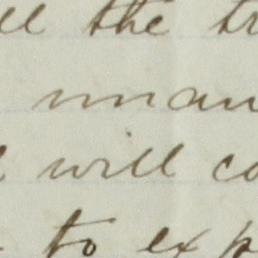 ll the tr
unan
will co
to exp